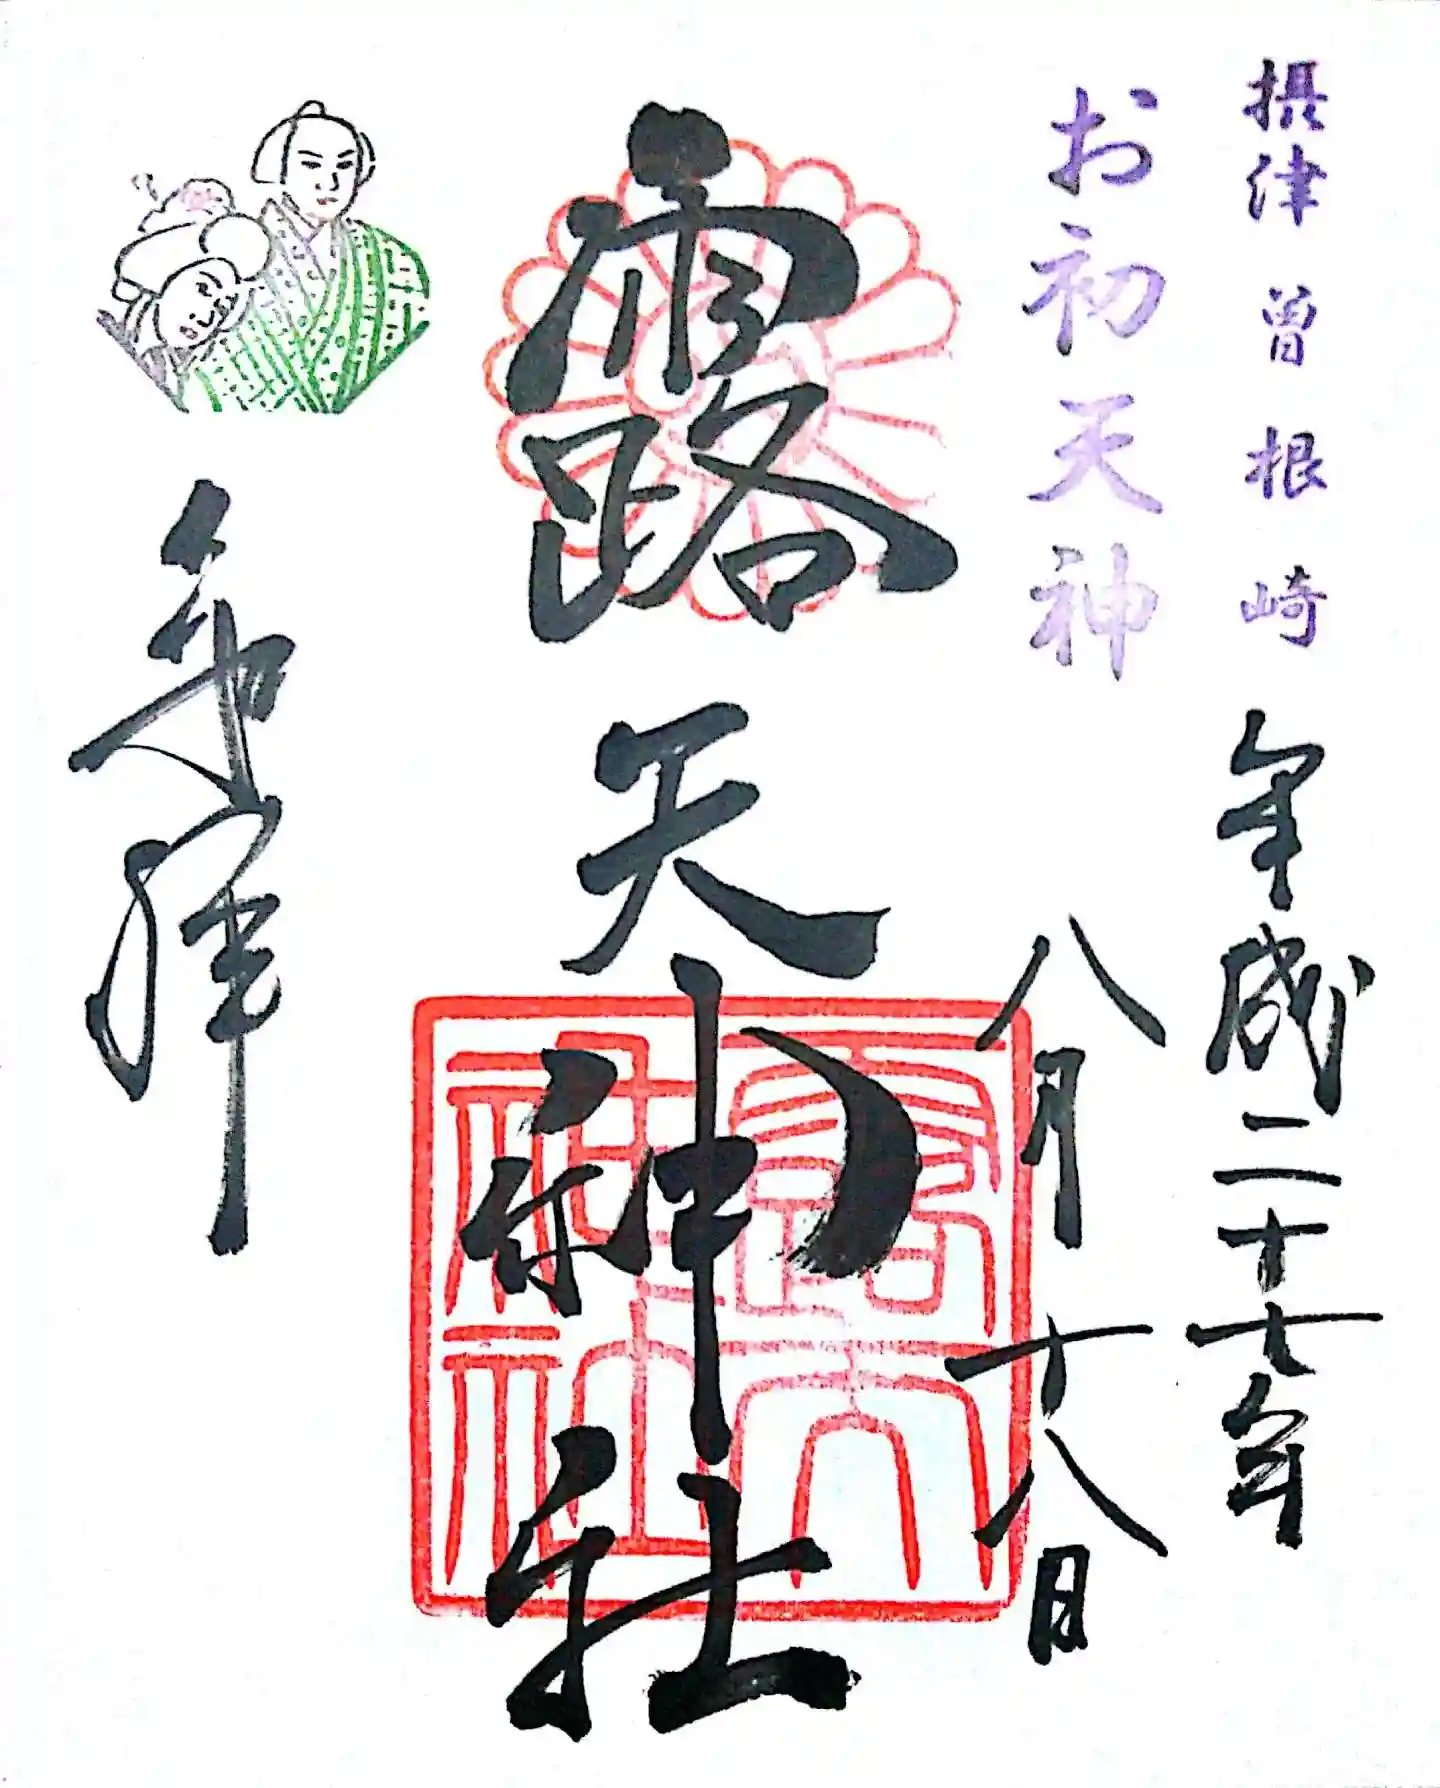 摂津 曽根崎
平成二十七年
お初天神
八月十八日
露天神社
露天神社
奉拝